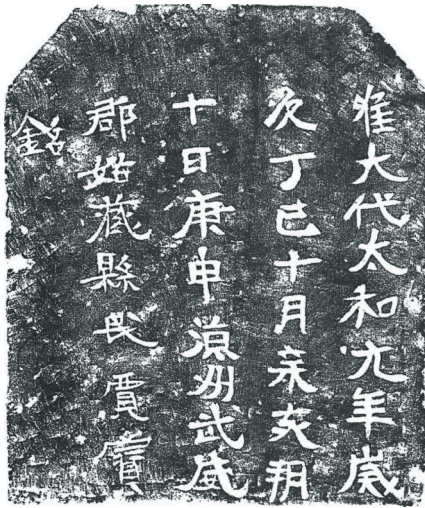 惟大代太和元年歲
次丁巳十月辛亥朔
十日庚申涼州武威
郡姑藏縣民賈寶
銘